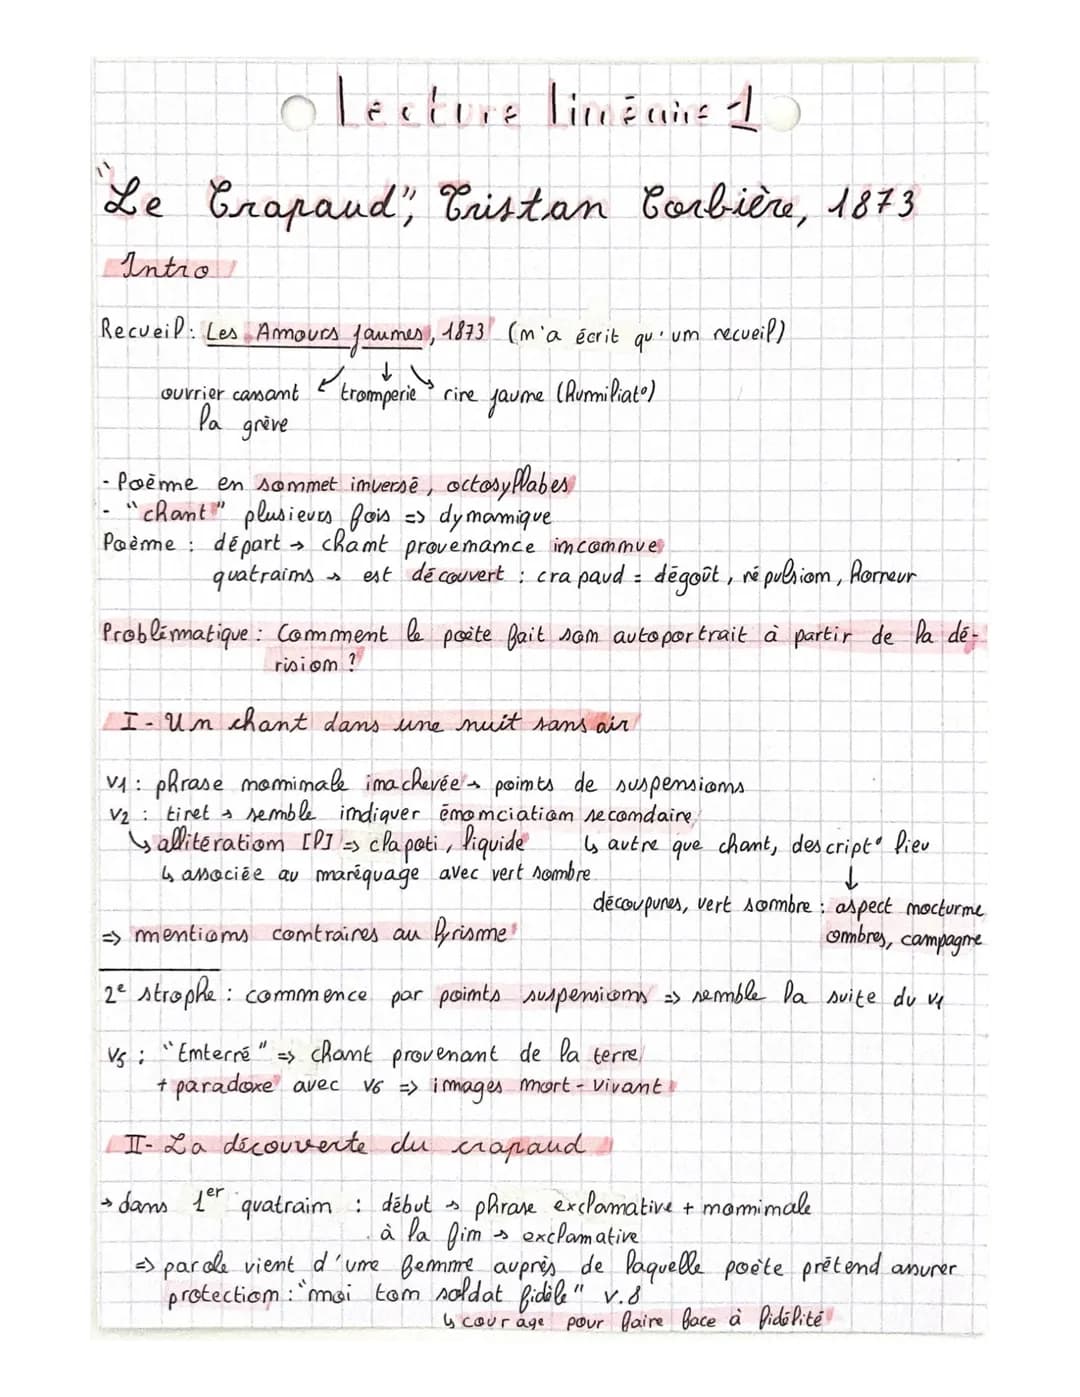 Lecture linéaire 1
"Le Crapaud", Tristan Corbière, 1873
Intro
Recueil : Les Amours jaunes, 1873 (n'a écrit qu'un recueil)
ouvrier cassant tromperie rire jaune (humiliat°)
la grève
- Poème en sommet inversé, octosyllabes
- "chant" plusieurs fois => dynamique
Poème : départ → chant provenance inconnue
quatrains → est découvert : crapaud = dégoût, répulsion, horreur
Problématique : Comment le poète fait son autoportrait à partir de la dé-
rision ?
I - Un chant dans une nuit sans air
V1 : phrase nominale inachevée → points de suspensions
V2 : tiret → semble indiquer énonciation secondaire
↳ allitération [l] => clapoti, liquide ↳ autre que chant, descript° lieu
↳ associée au maréquage avec vert sombre ↓
découpures, vert sombre : aspect nocturne
=> mentions contraires au lyrisme ombres, campagne
2e strophe : commence par points suspensions => semble la suite du v4
V5 : "Enterré" => chant provenant de la terre
+ paradoxe avec v6 => images mort-vivant
II - La découverte du crapaud
→ dans 1er quatrain : début → phrase exclamative + nominale
à la fin → exclamative
=> parole vient d'une femme auprès de laquelle poète prétend assurer
protection : "moi ton soldat fidèle" v.8
↳ courage pour faire face à fidélité